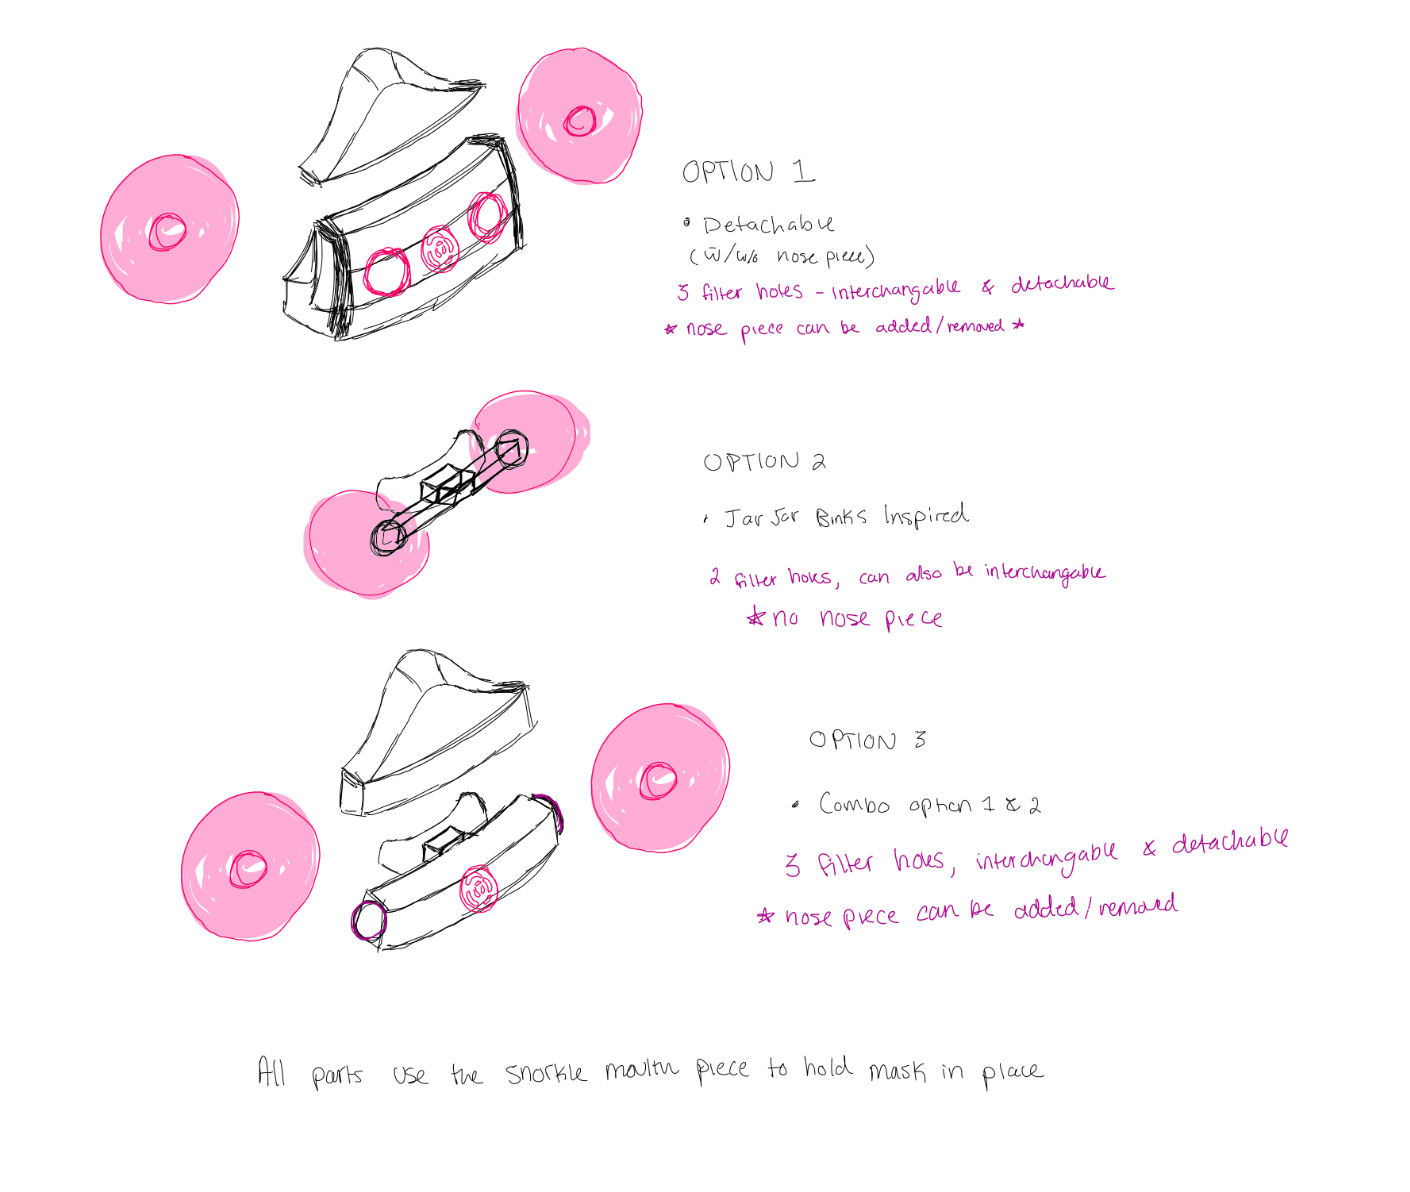 OPTION 1
• Detachable
(w/w/o nose piece)
3 filter holes - interchangable & detachable
* nose piece can be added/removed *
OPTION 2
• Jar Jar Binks Inspired
2 filter holes, can also be interchangable
* no nose piece
OPTION 3
• Combo option 1 & 2
3 filter holes, interchangable & detachable
* nose piece can be added/removed
All parts use the snorkle mouth piece to hold mask in place